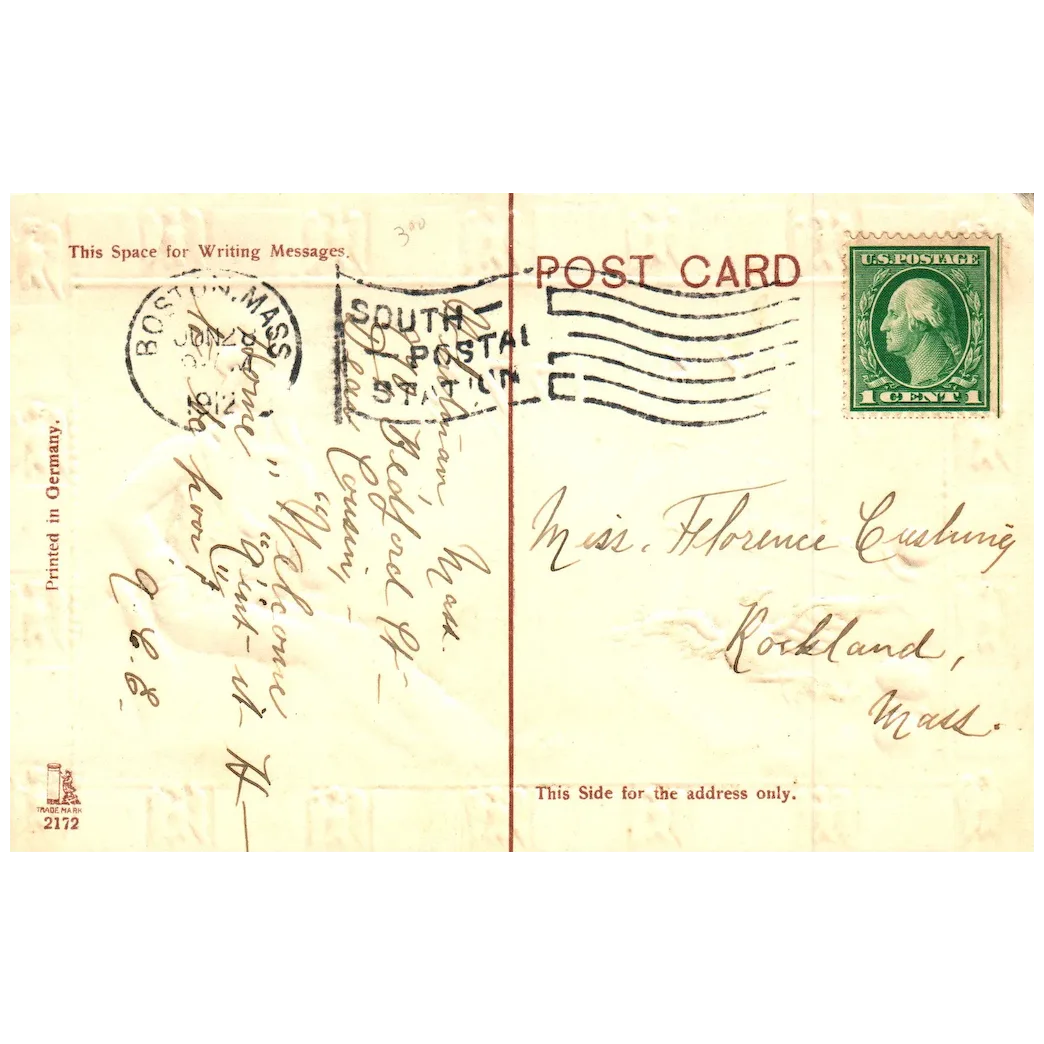 This Space for Writing Messages.
300
POST CARD
U.S. POSTAGE
1 CENT 1
BOSTON, MASS
JUN 2
1912
SOUTH
POSTAL
STATION
Mass.
Bedford St
Dear Cousin,
"Welcome
Home"
"Ain't it
A. C. E.
Miss. Florence Cushing
Rockland,
Mass.
Printed in Germany.
TRADE MARK
2172
This Side for the address only.